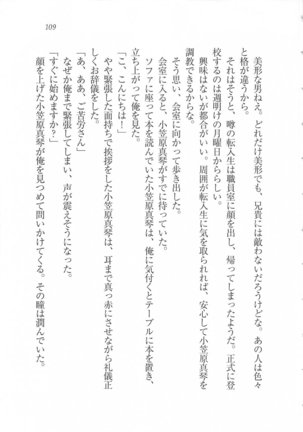 109
美形な男ねえ。どれだけ美形でも、兄貴には敵わないだろうけどな。あの人は色々
と格が違うから。
それはそうと、噂の転入生は職員室に顔を出し、帰ってしまったようだ。正式に登
校するのは週明けの月曜日かららしい。
興味はないが都合がいい。周囲が転入生に気を取られれば、安心して小笠原真琴を
調教できるからな。
そう思い、会室に向かって歩き出した。
会室に入ると、小笠原真琴がすでに待っていた。
ソファに座って本を読んでいた小笠原真琴は、俺に気付くとテーブルに本を置き、
立ち上がって俺を見た。
「こ、こんにちは！」
やや緊張した面持ちで挨拶をした小笠原真琴は、耳まで真っ赤にさせながら礼儀正
しくお辞儀をした。
「ああ、ご苦労さん」
なぜか俺まで緊張してしまい、声が震えそうになった。
「すぐに始めますか？」
顔を上げた小笠原真琴が俺を見つめて問いかけてくる。その瞳は潤んでいた。